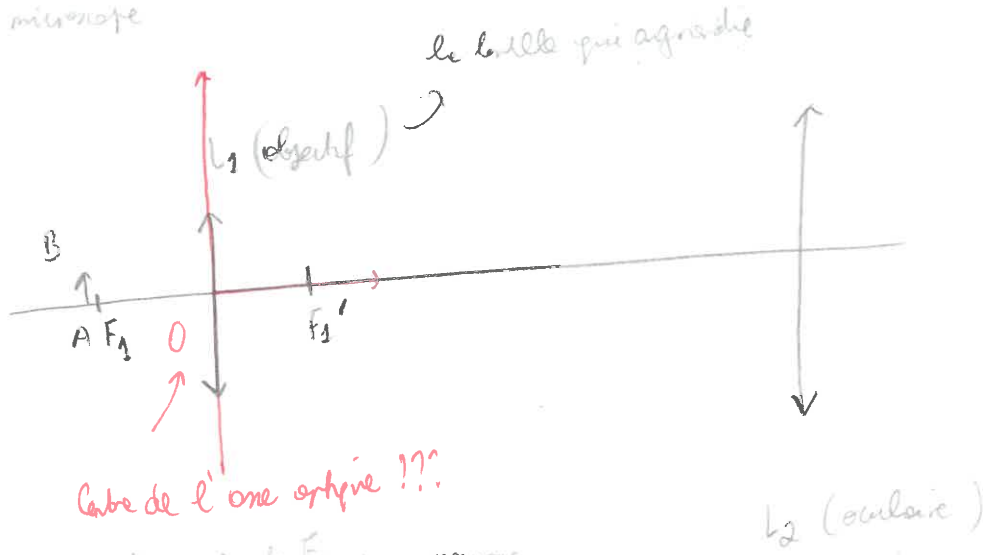 microscope
la lentille qui agrandie
L1 (objectif)
B
A F1 O F1'
Centre de l'axe optique !!!
L2 (oculaire)